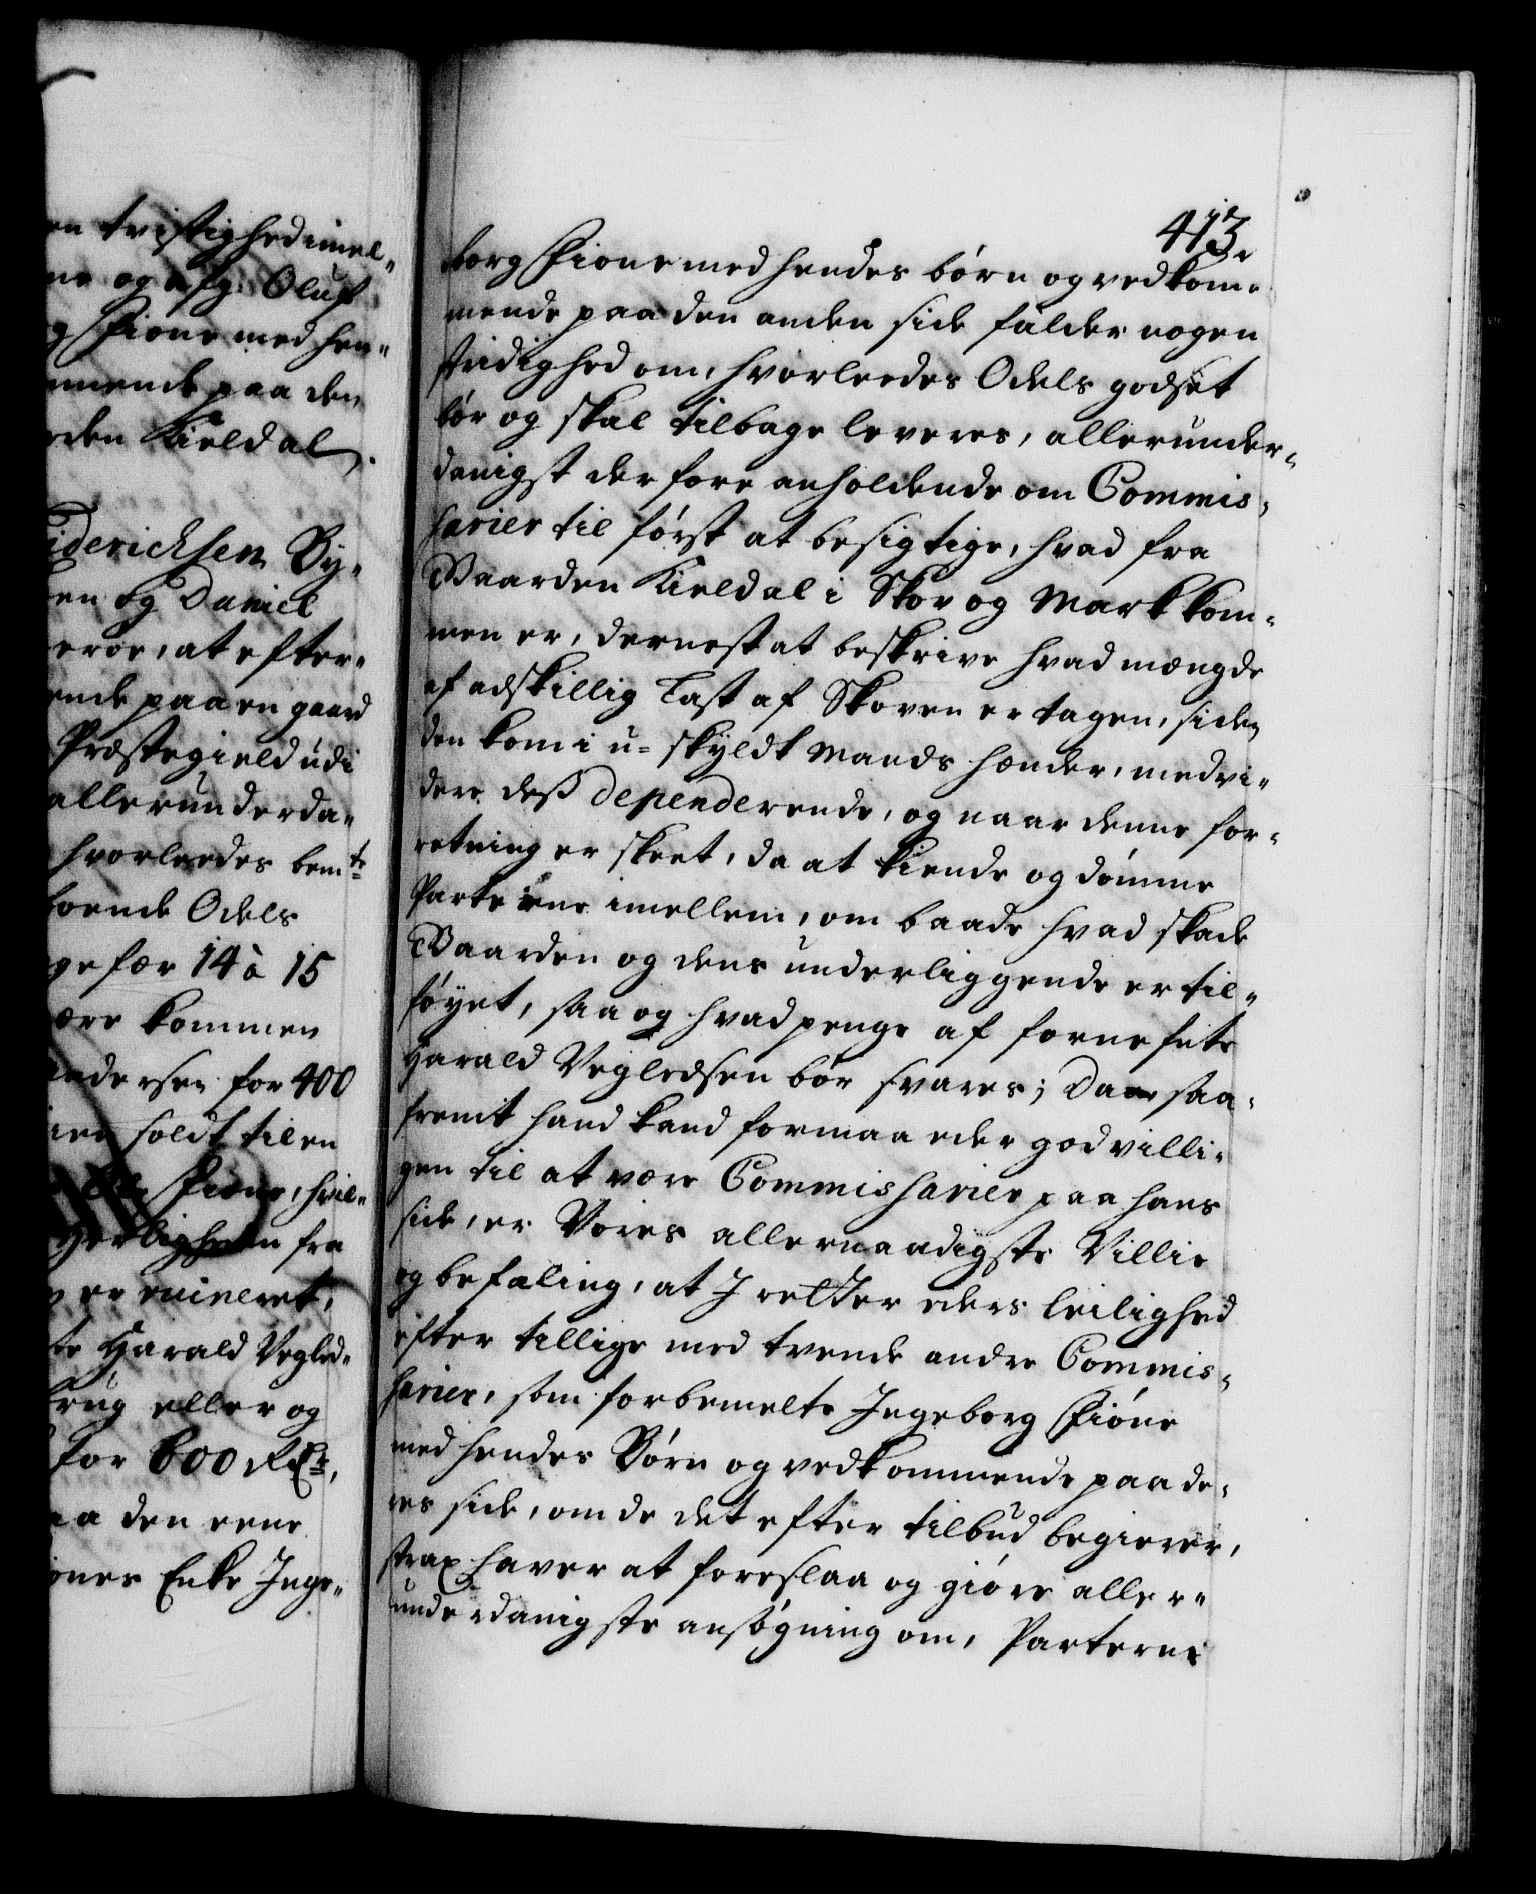 en tvistighed imel-
ne og afg: Oluf
g Fione med hen-
mmende paa den
rden Kieldal.
iderichsen By-
en og Daniel
eroe, at efter-
ende paa en gaard
Præstegield udi
allerunderda-
hvorleedes bemte
boende Odels
gefær 14 à 15
ære kommen
Andersen for 400
ien soldt til en
Fione, hvil-
Herligheden fra
er ruineret,
te Harald Vegled-
brug eller og
for 600 Rdr,
aa den eene
iones Enke Inge-
413.
borg Fione med hendes børn og vedkom-
mende paa den anden side falder nogen
stridighed om, hvorleedes Odels godset
bør og skal tilbage leveres, allerunder-
danigst derfore anholdende om Commis-
sarier til først at besigtige, hvad fra
Gaarden Kieldal i Skov og Mark kom-
men er, dernest at beskrive hvad mængde
af adskillig Last af Skoven er tagen, siden
den kom i u-skyldt Mands hænder, med vi-
dere deß dependerende, og naar denne for-
retning er skeet, da at kiende og dømme
Parterne imellem, om baade hvad skade
Gaarden og dens underliggende er til-
føyet, saa og hvad penge af fornefnte
Harald Vegledsen bør svares; Da saa-
fremt hand kand formaa eder godvilli-
gen til at være Commissarier paa hans
side, er Vores allernaadigste Villie
og befaling, at I retter eders leilighed
efter tillige med tvende andre Commis-
sarier, som forbemelte Ingeborg Fióne
med hendes Børn og vedkommende paa de-
res side, om de det efter tilbud begierer,
strax haver at foreslaa og giøre aller-
underdanigste ansøgning om, Parterne